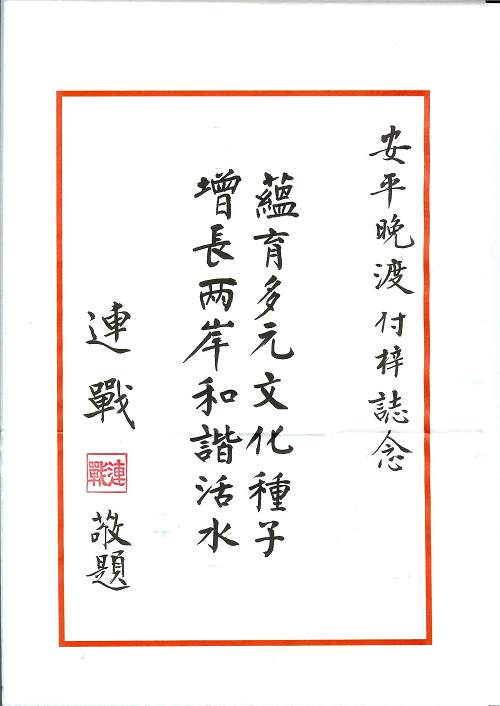 安平晚渡付梓誌念
蘊育多元文化種子
增長两岸和諧活水
連戰
連戰
敬題